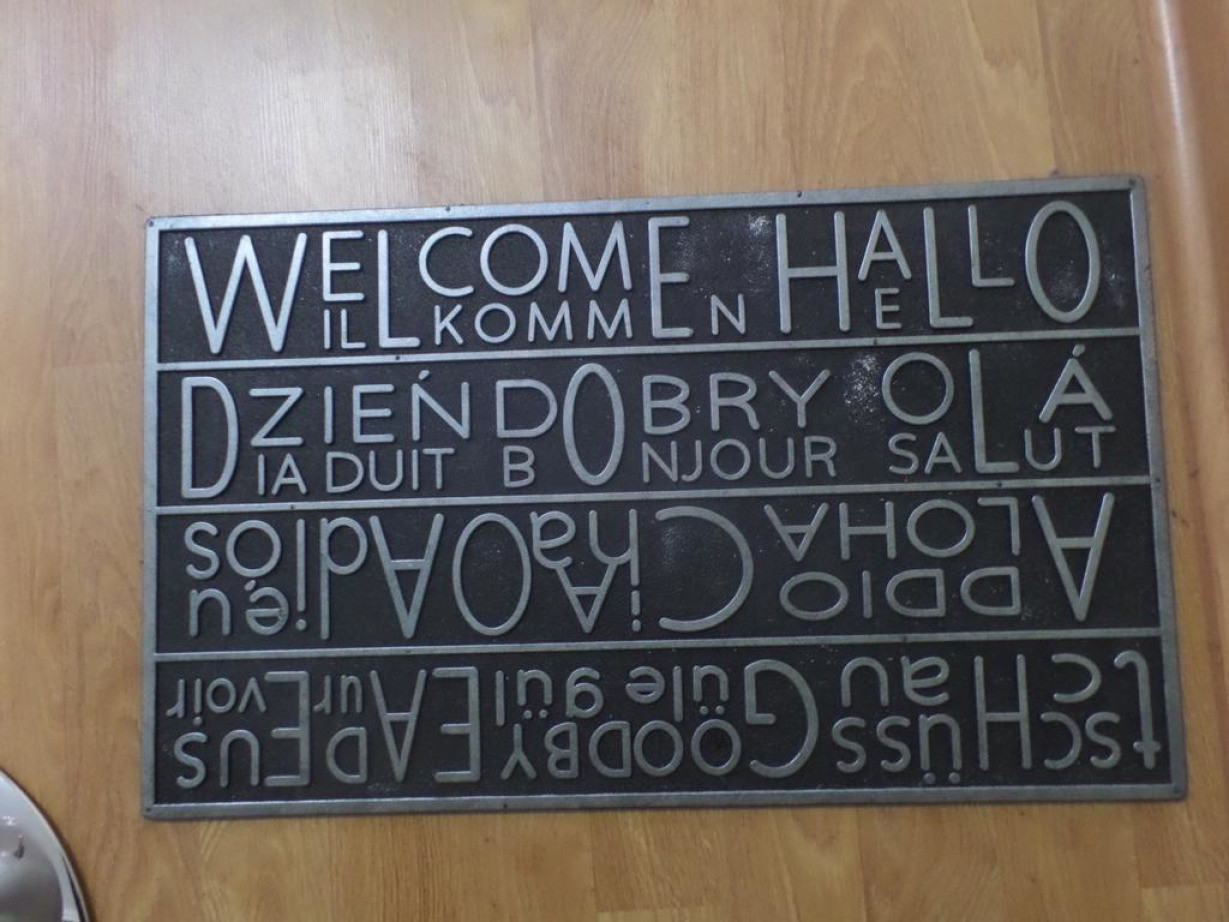 WELCOME HALLO
WILLKOMMEN HELLO
DZIEŃ DOBRY OLÁ
DIA DUIT BONJOUR SALUT
tscHüss GOODBYE ADEUS
tcHau Güle gülE Au rEvoir
ADDIO CiAO Adieu
ALOHA ChaO Adiós